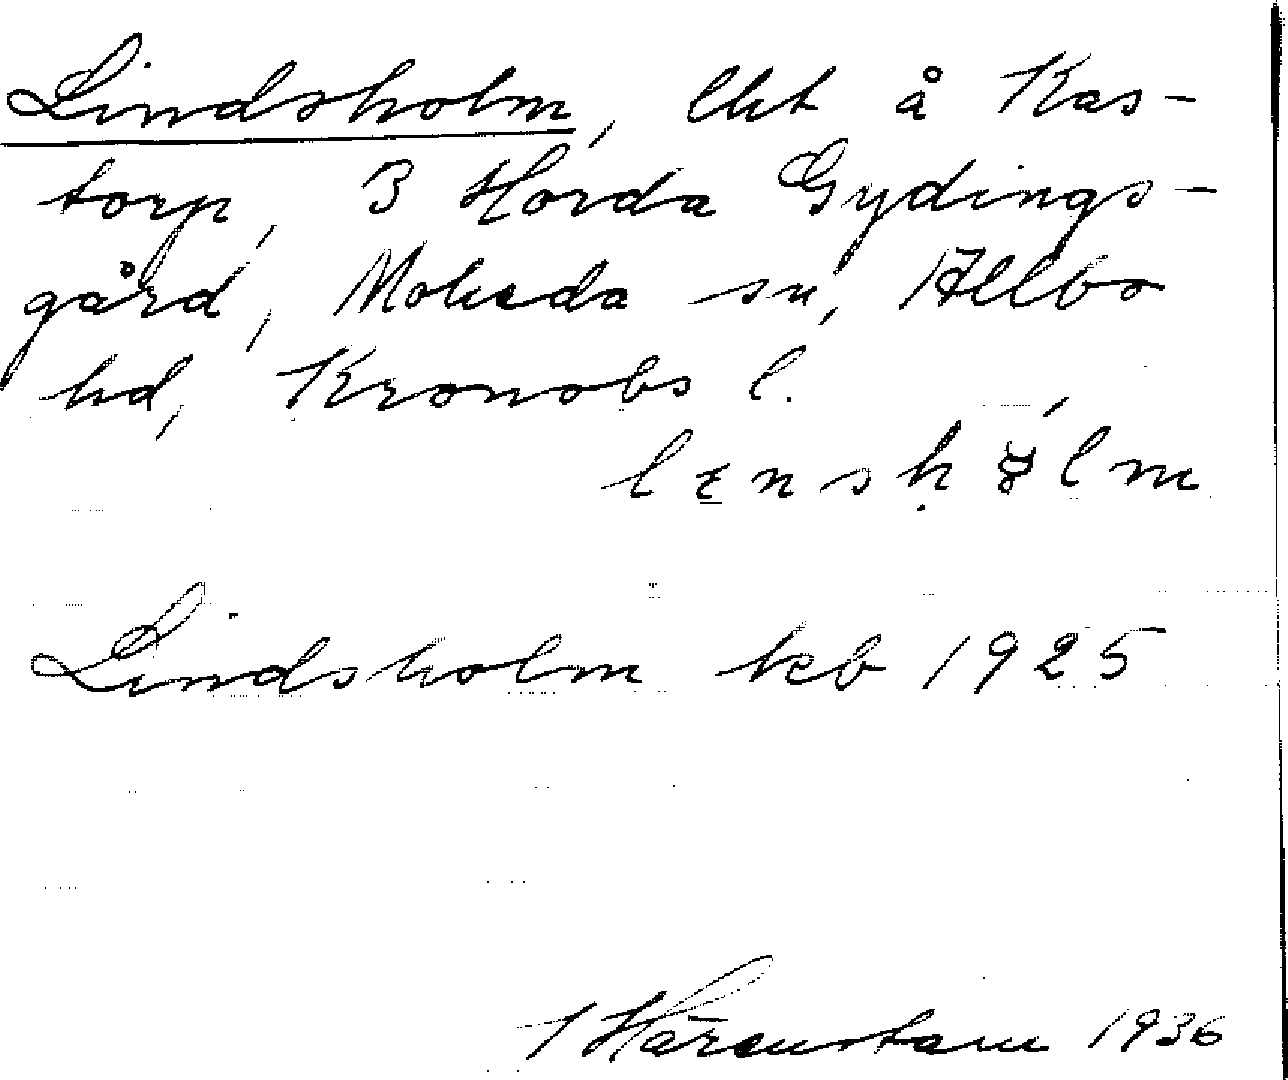 Lindsholm, lht å Kas-
torp, 3 Horda Gydings-
gård, Moheda sn, Allbo
hd, Kronobs l.
Lindsholm kb 1925
Härenstam 1936